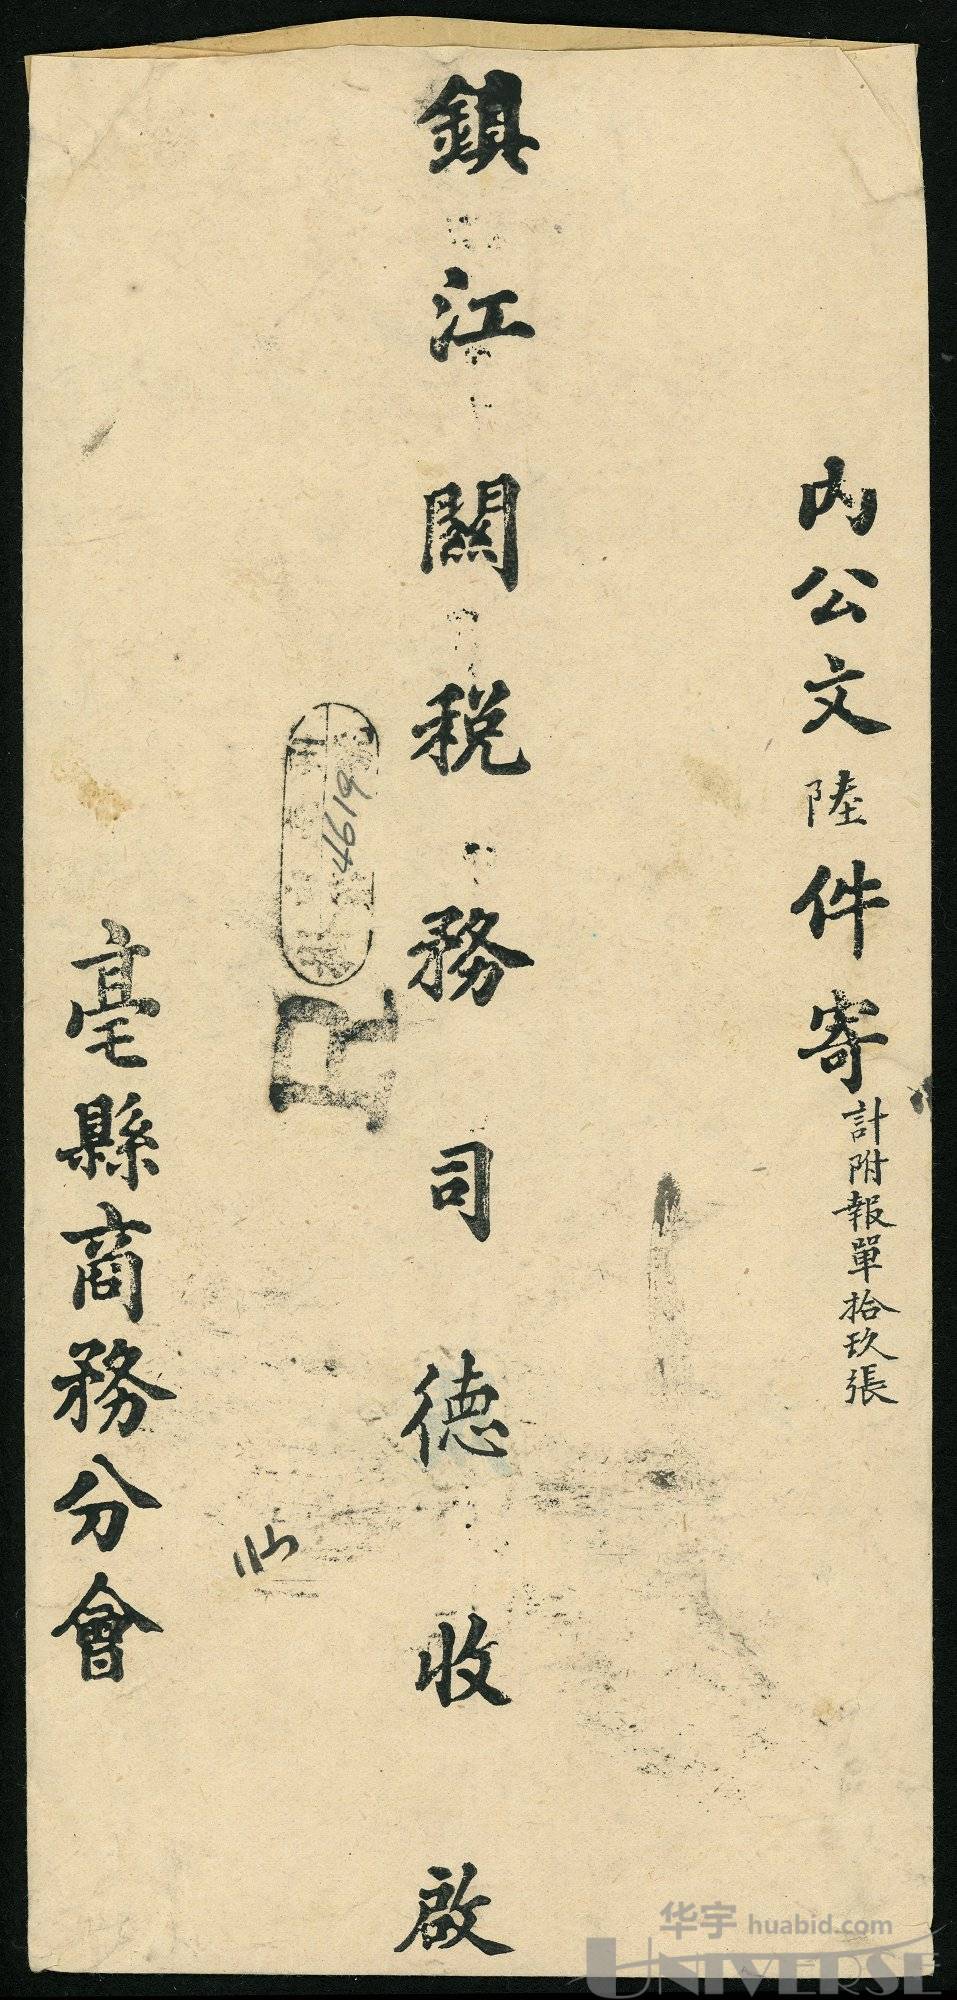 內公文陸件寄
計附報單拾玖張
鎮江關稅務司德收啟
亳縣商務分會
4619
R
华宇 huabid.com
UNIVERSE